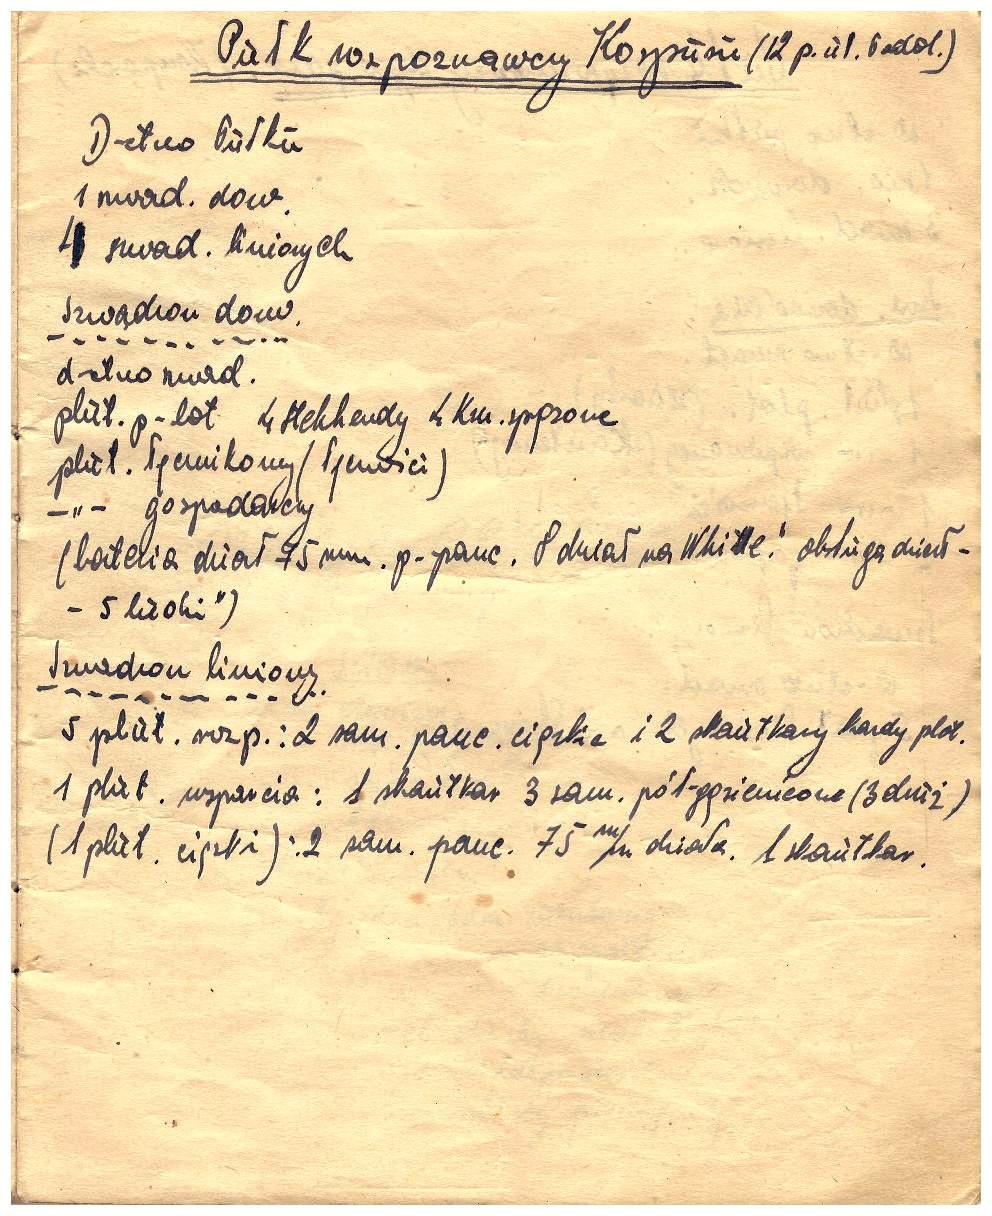 Pułk rozpoznawczy Korpusu (12 p. uł. Podol.)
D-ctwo Pułku
1 szwad. dow.
4 szwad. liniowych
Szwadron dow.
d-ctwo szwad.
plut. p-lot 4 Stekhendy 4 Km. sprzone
plut. łącznikowy (łączności)
-"- gospodarczy
(bateria dział 75 mm. p-panc. 8 dział na White! obsługa dział -
- 5 ludzi")
Szwadron liniowy.
5 plut. rozp.: 2 sam. panc. ciężkie i 2 skautkary każdy plut.
1 plut. wsparcia: 1 skautkar 3 sam. pół-gąsienicowe (3 druż)
(1 plut. ciężki): 2 sam. panc. 75 m/m działa. 1 skautkar.